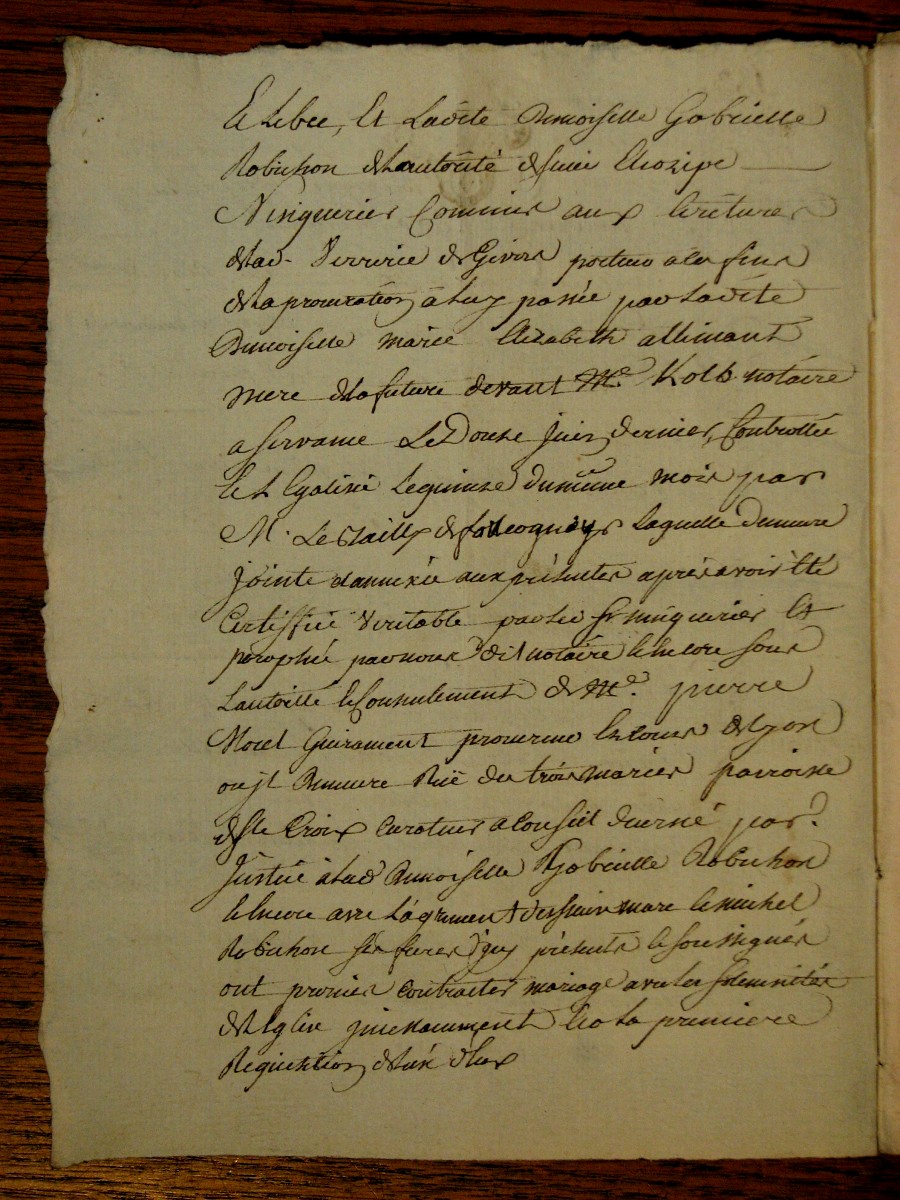 et Lad.te Demoiselle Gabrielle
Robichon de Lautorité de
Ninguerier Commis aux Ecritures
de lad. Verrerie de Givors porteur a ces fins
de la procuration à luy passée par Ladite
Demoiselle marie Elizabeth allimant
mere de la future devant Me. Kolb notaire
a Servance Le Douze Juin dernier, Controllée
le quinze du même mois par
M. Le de faucogney laquelle demeure
jointe et annexée aux présentes après avoir Eté
Certiffiée Veritable par le Sr. ninguerier Et
paraphée par nous dit notaire et encore sous
Lautorité de Me. pierre
Morel Guirament procureur Es cours de Lyon
ou jl demeure Ruë des trois maries parroisse
de Ste Croix Curateur a Conseil décerné par
Justice à lad. Demoiselle Gabrielle Robichon
et encore avec Lagrement des Sieurs marc et michel
Robichon ses freres jcy présents et soussignés
ont promis contracter mariage avec les solemnités
de Leglise jncessamment Et a la premiere
Requisition de L'un d'Eux